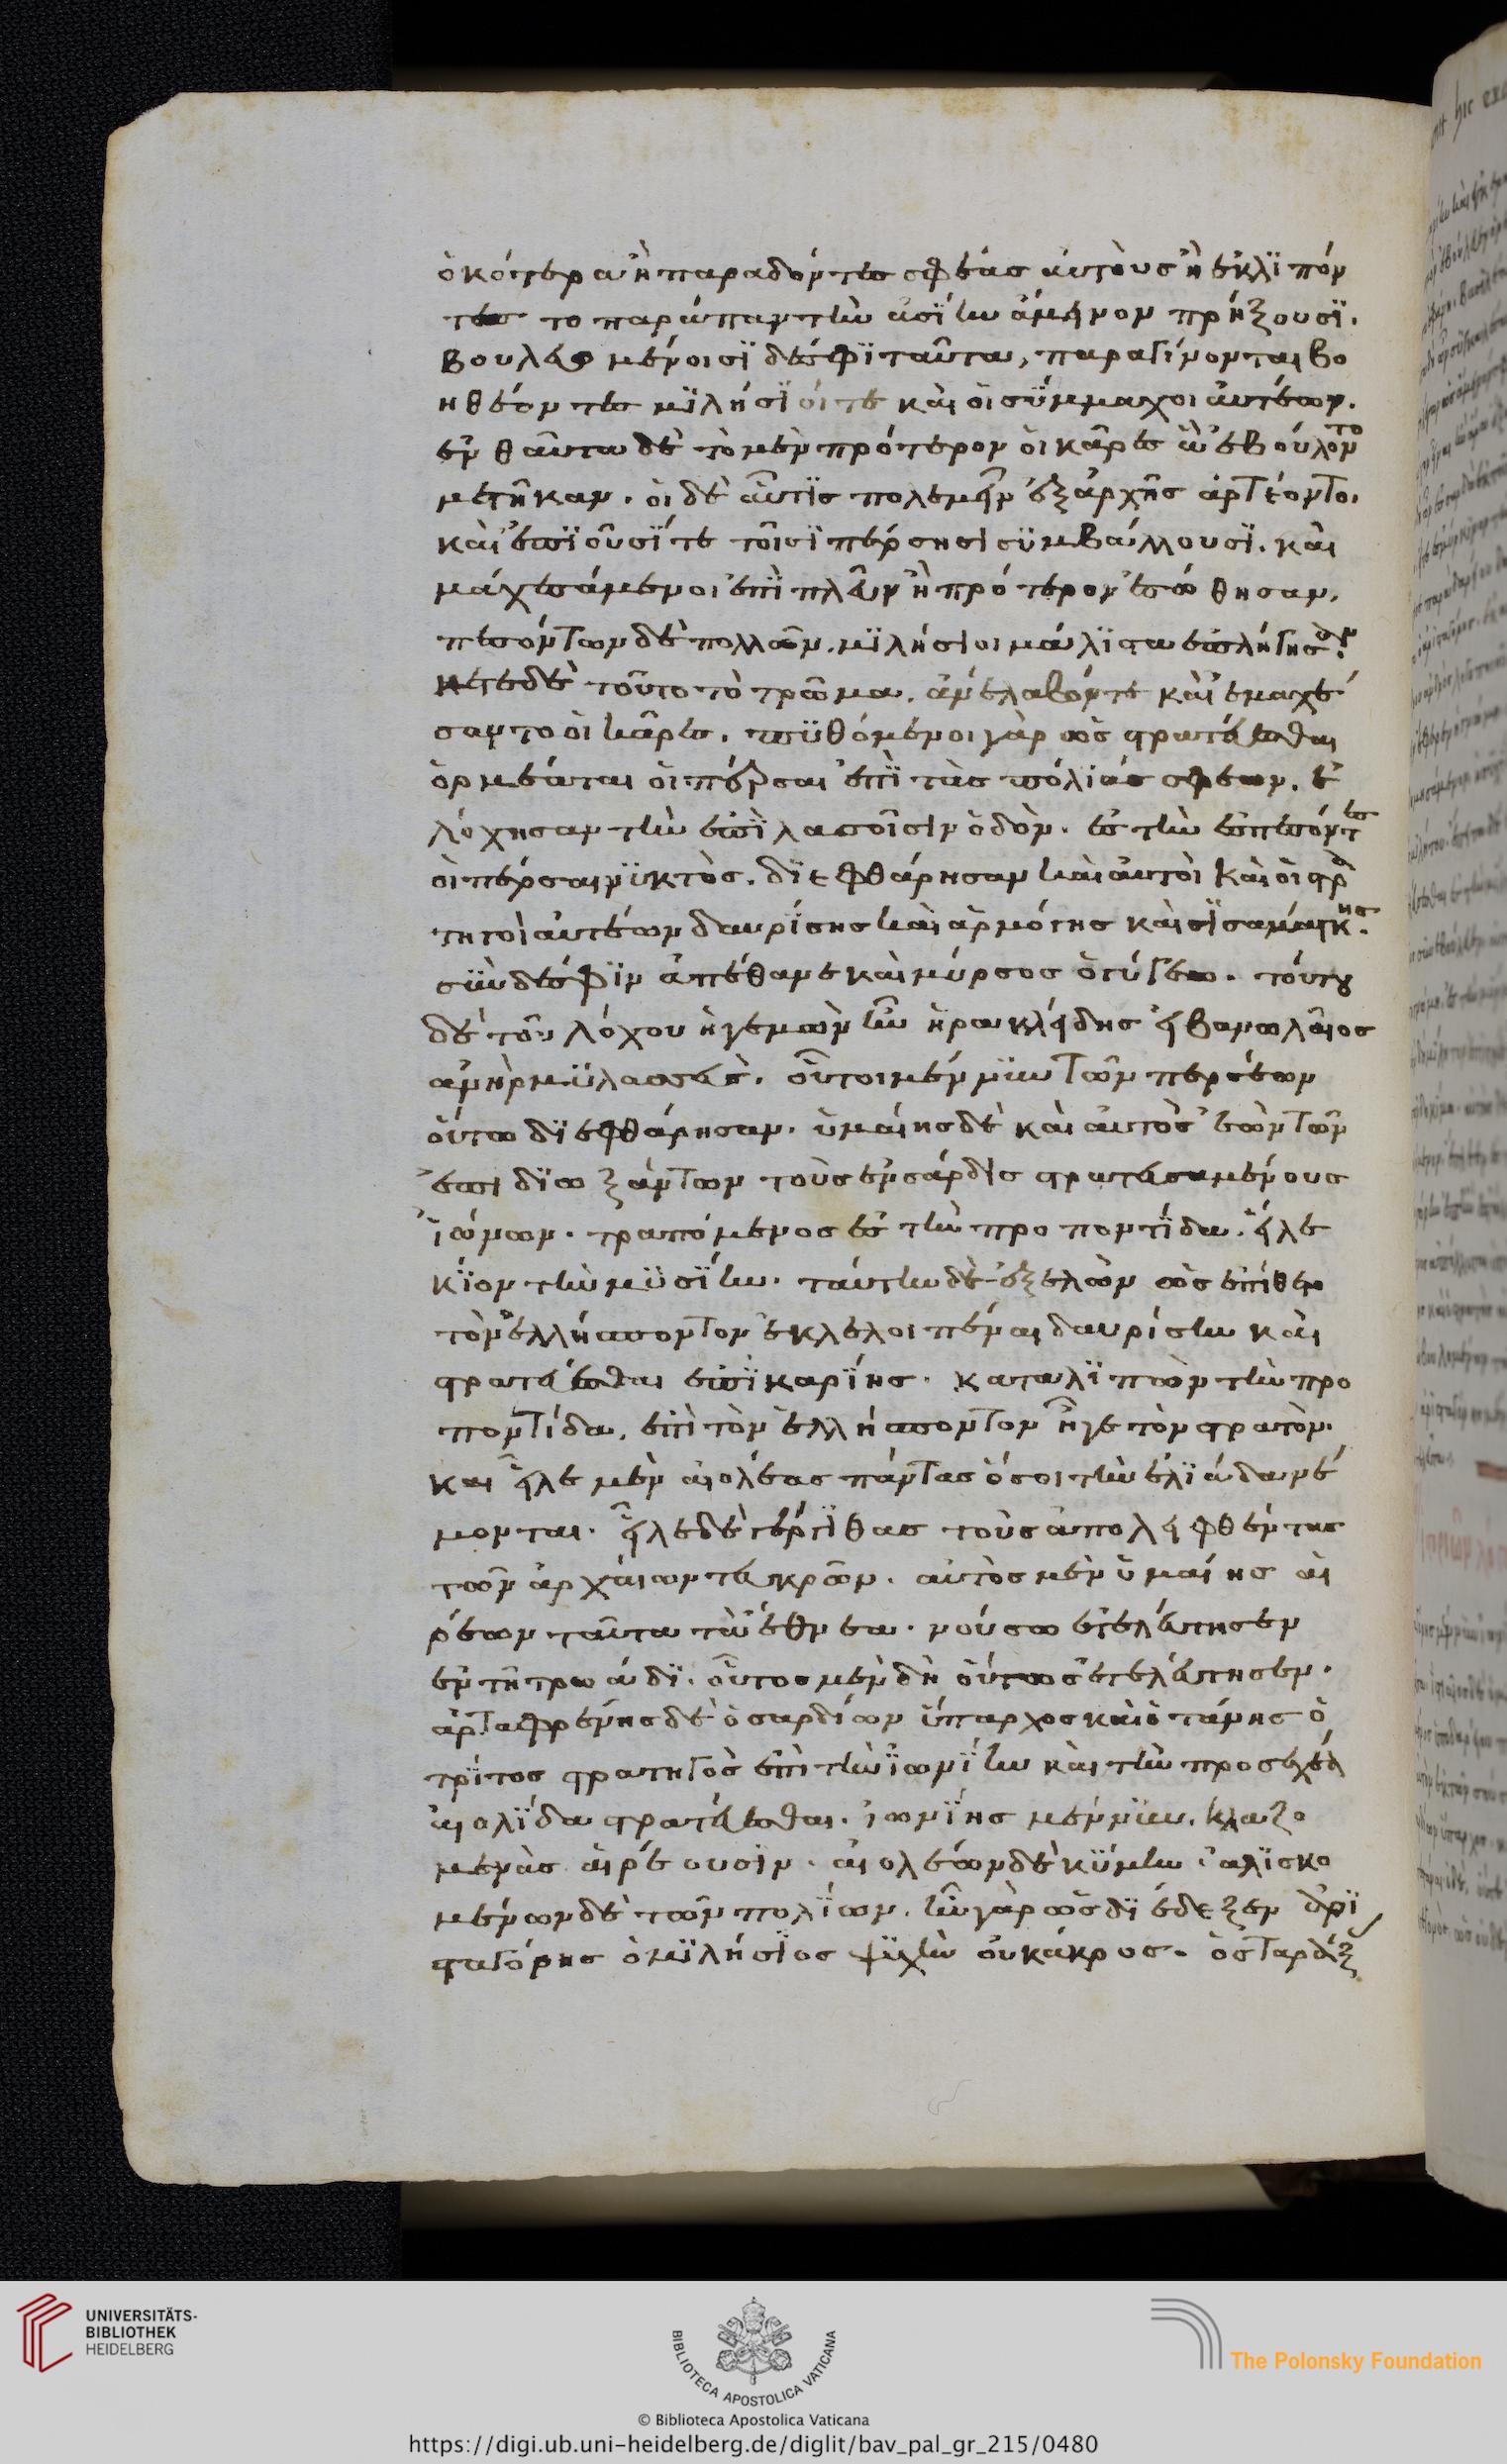 ὁκότερα ἢ παραδόντες σφέας αὐτοὺς ἢ ἐκλϊπόν
τες το παράπαν τὴν ἀσϊην ἄμεινον πρήξουσϊ.
βουλευομένοισϊ δέ σφϊ ταῦτα, παραγίνονται βο
ηθέοντες μϊλήσϊοί τε καὶ οἱ σΰμμαχοι αὐτέων.
ἐνθαῦτα δὲ τὸ μὲν πρότερον οἱ κᾶρες ἃ ἐβούλοντο
μετῆκαν. οἱ δὲ αὖτϊς πολεμεῖν ἐξ ἀρχῆς ἀρτέοντο.
καὶ ἐπϊοῦσΐ τε τοῖσϊ πέρσησι συμβάλλουσϊ. καὶ
μαχεσάμενοι ἐπὶ πλεῦν ἢ πρότερον ἑσώθησαν.
πεσόντων δὲ πολλῶν. μϊλήσιοι μάλϊστα ἐπλήγησαν.
μετεδὲ τοῦτο τὸ τρῶμα. ἀνέλαβόν τε καὶ ἐμαχέ
σαντο οἱ κᾶρες. πυθόμενοι γὰρ ὡς στρατεύεσθαι
ὁρμέαται οἱ πέρσαι ἐπὶ τὰς πόλιας σφέων. ἐ
λόχησαν τὴν ἐπὶ λασοῖσιν ὁδόν. ἐς τὴν ἐσπεσόντες
οἱ πέρσαι νυκτὸς. δϊεφθάρησαν καὶ αὐτοὶ καὶ οἱ στρα
τηγοὶ αὐτέων δαυρίσης καὶ ἀμόργης καὶ σϊσαμάκης.
σὺν δέ σφϊν ἀπέθανε καὶ μύρσος ὁ γύγεω. τούτου
δὲ τοῦ λόχου ἡγεμὼν ἦν ἡρακλείδης ἠβανωλαιος
ἀνὴρ μϋλασσεὺς. οὗτοι μέν νϋν τῶν περσέων
οὕτω δϊεφθάρησαν. ὑμαίης δὲ καὶ αὐτὸς ἐὼν τῶν
ἐπιδϊωξάντων τοὺς ἐν σάρδις στρατευσαμένους
ἰώνων. τραπόμενος ἐς τὴν προποντΐδα. εἷλε
κΐον τὴν μϋσϊην. ταύτην δὲ ἐξελὼν ὡς ἐπύθετο
τὸν ἑλλήσποντον ἐκλελοιπέναι δαυρίσην καὶ
στρατεύεσθαι ἐπὶ καρΐης. καταλϊπὼν τὴν προ
ποντίδα, ἐπὶ τὸν ἑλλήσποντον ἦγε τὸν στρατὸν.
και εἷλε μὲν αἰολέας πάντας ὅσοι τὴν ἐλϊάδα νέ
μονται. εἷλε δὲ γέργϊθας τοὺς ἀπολειφθέντας
τῶν ἀρχαίων τευκρῶν. αὐτὸς μὲν ὑμαίης αἱ
ρέων ταῦτα τὰ ἔθνεα. νούσω ἐτελεύτησεν
ἐν τῆ τρωάδϊ. οὗτος μὲν δὴ οὕτως ἐτελεύτησεν.
ἀρταφρένης δὲ ὁ σαρδίων ὕπαρχος καὶ ὀτάνης ὁ
τρΐτος στρατηγὸς ἐπὶ τὴν ἰωνΐην καὶ τὴν προσεχέα
αἰολΐδα στρατεύεσθαι. ἰωνΐης μέν νϋν. κλαζο
μενὰς αἱρέουσιν. αἰολέων δὲ κΰμην. ἁλϊσκο
μένων δὲ τῶν πολΐων. ἦν γὰρ ὡς δϊέδεξεν ἀρϊ
σταγόρης ὁ μϊλήσϊος ψϋχὴν οὐκ ἄκρος. ὃς ταράξ
UNIVERSITÄTS-
BIBLIOTHEK
HEIDELBERG
BIBLIOTECA APOSTOLICA VATICANA
The Polonsky Foundation
© Biblioteca Apostolica Vaticana
https://digi.ub.uni-heidelberg.de/diglit/bav_pal_gr_215/0480